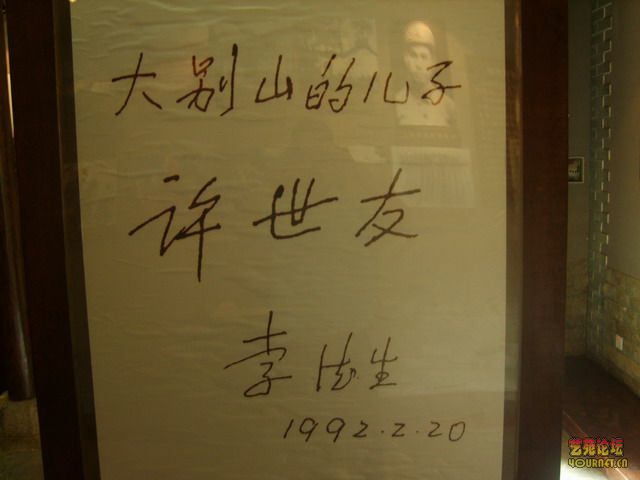 大别山的儿子
许世友
李德生
1992.2.20
艺苑论坛
YOURNET.CN